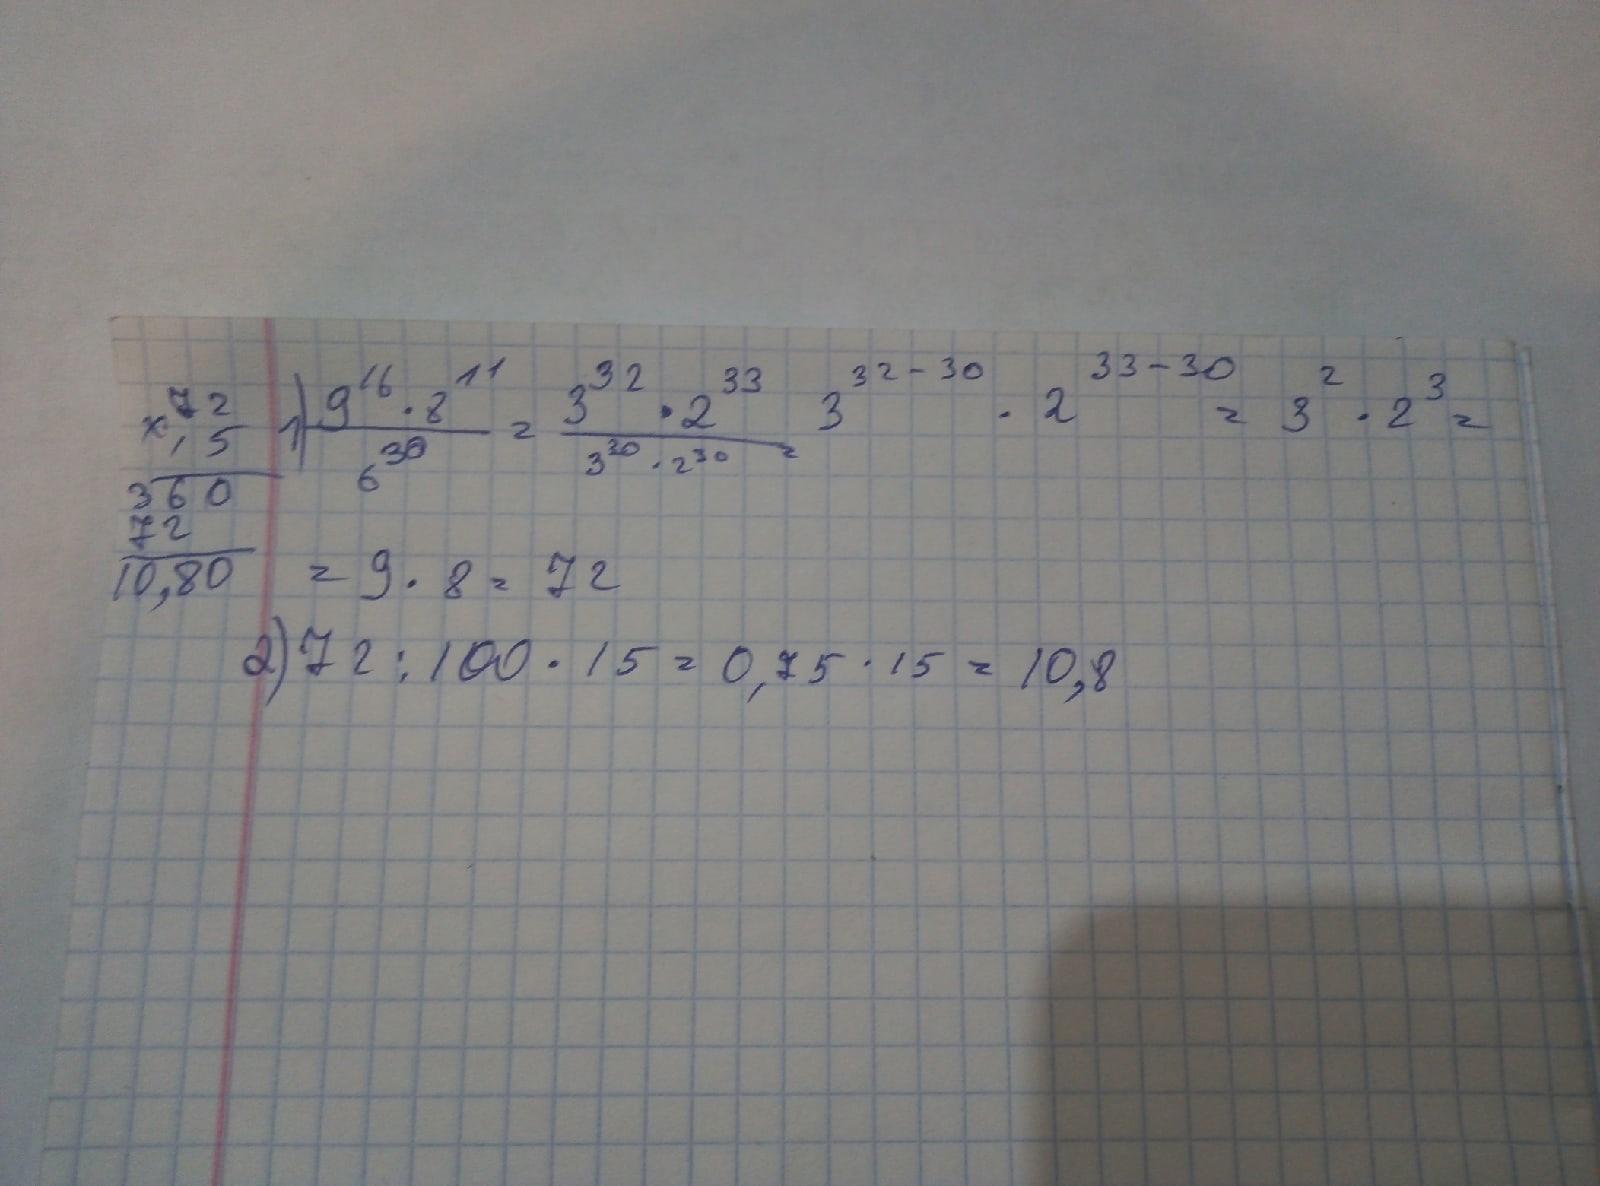 72
× 15
360
72
10,80
1) 9^16 · 8^11 / 6^30 = 3^32 · 2^33 / 3^30 · 2^30 = 3^(32-30) · 2^(33-30) = 3^2 · 2^3 =
= 9 · 8 = 72
2) 72 : 100 · 15 = 0,75 · 15 = 10,8